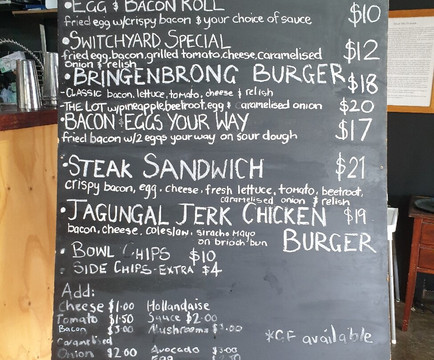 •EGG & BACON ROLL $10
fried egg w/crispy bacon & your choice of sauce
•SWITCHYARD SPECIAL $12
fried egg, bacon, grilled tomato, cheese, caramelised
onion & relish
•BRINGENBRONG BURGER $18
-CLASSIC bacon, lettuce, tomato, cheese & relish
-THE LOT w/pineapple, beetroot, egg & caramelised onion $20
•BACON & EGGS YOUR WAY $17
fried bacon w/2 eggs your way on sour dough
•STEAK SANDWICH $21
crispy bacon, egg, cheese, fresh lettuce, tomato, beetroot,
caramelised onion & relish
•JAGUNGAL JERK CHICKEN $19
bacon, cheese, coleslaw, siracha mayo
on brioch bun BURGER
•BOWL CHIPS $10
•SIDE CHIPS-EXTRA $4
Add:
Cheese $1.00 Hollandaise
Tomato $1.50 Sauce $2.00
Bacon $3.00 Mushrooms
Caramelised
Onion $2.00 Avocado $3.00
Egg
*GF available